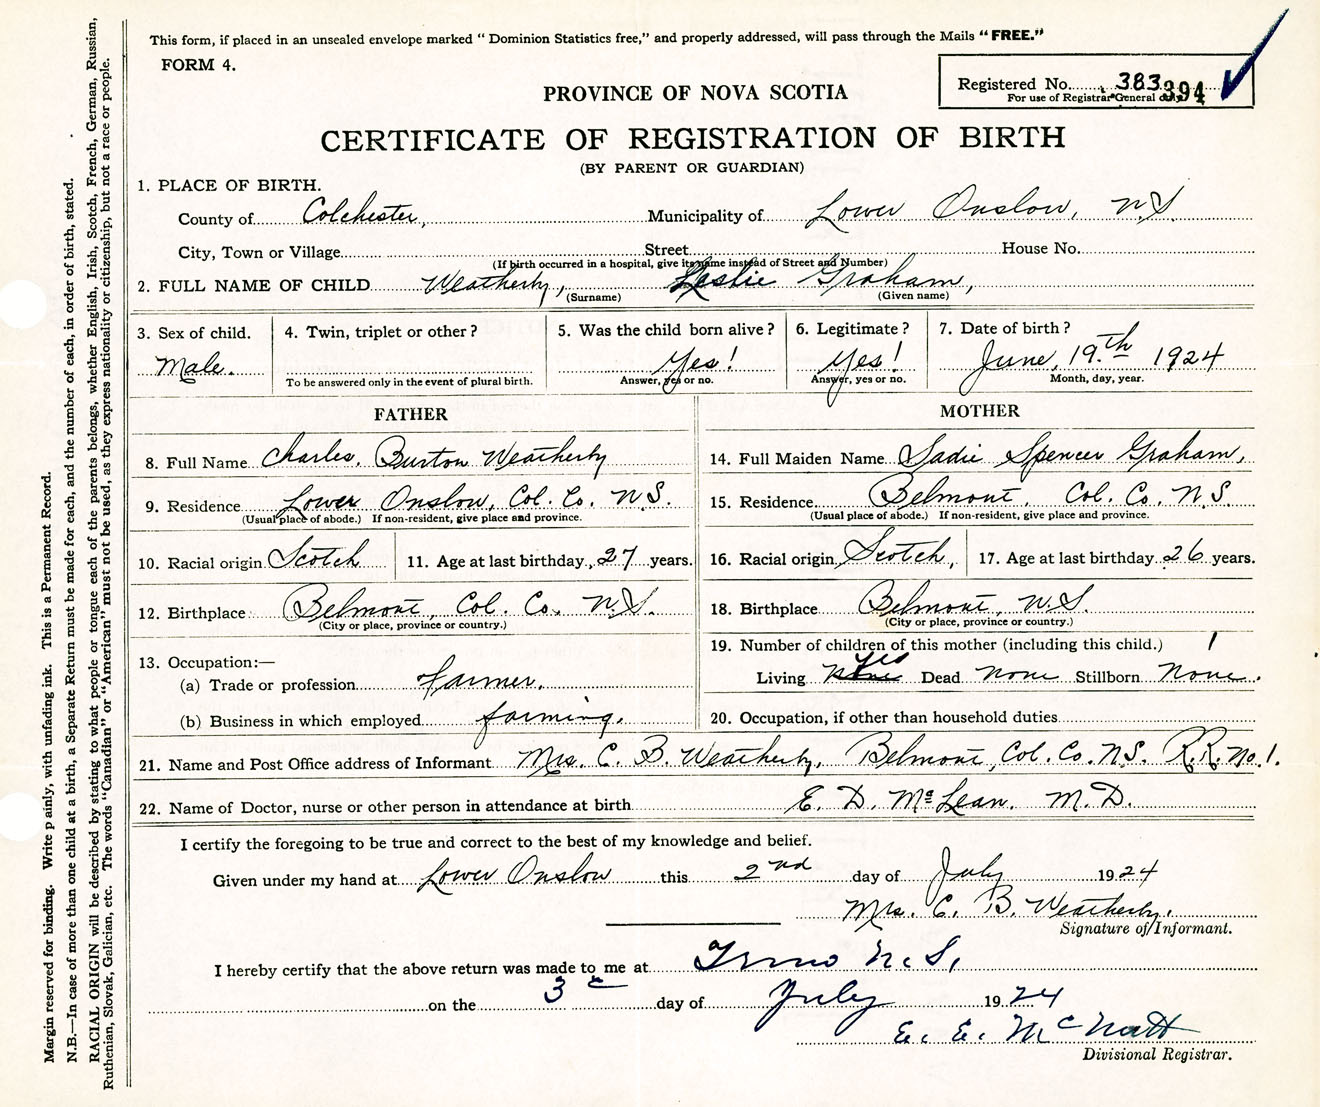 This form, if placed in an unsealed envelope marked “ Dominion Statistics free,” and properly addressed, will pass through the Mails “FREE.”
FORM 4.
Registered No. 383 394
For use of Registrar General only
PROVINCE OF NOVA SCOTIA
CERTIFICATE OF REGISTRATION OF BIRTH
(BY PARENT OR GUARDIAN)
1. PLACE OF BIRTH.
County of Colchester, Municipality of Lower Onslow, N.S.
City, Town or Village Street House No.
(If birth occurred in a hospital, give its name instead of Street and Number)
2. FULL NAME OF CHILD Weatherby, Leslie Graham,
(Surname) (Given name)
3. Sex of child. Male.
4. Twin, triplet or other?
To be answered only in the event of plural birth.
5. Was the child born alive?
Yes!
Answer, yes or no.
6. Legitimate?
Yes!
Answer, yes or no.
7. Date of birth?
June, 19.th 1924
Month, day, year.
FATHER
8. Full Name Charles. Burton Weatherby
9. Residence Lower Onslow, Col. Co. N.S.
(Usual place of abode.) If non-resident, give place and province.
10. Racial origin Scotch 11. Age at last birthday, 27 years.
12. Birthplace Belmont, Col. Co. N.S.
(City or place, province or country.)
13. Occupation:—
(a) Trade or profession farmer.
(b) Business in which employed farming.
MOTHER
14. Full Maiden Name Sadie Spencer Graham,
15. Residence Belmont, Col. Co. N.S.
(Usual place of abode.) If non-resident, give place and province.
16. Racial origin Scotch, 17. Age at last birthday 26 years.
18. Birthplace Belmont, N.S.
(City or place, province or country.)
19. Number of children of this mother (including this child.) 1
yes
Living None Dead None Stillborn None.
20. Occupation, if other than household duties
21. Name and Post Office address of Informant Mrs. C. B. Weatherby, Belmont, Col. Co. N.S. R.R. No. 1.
22. Name of Doctor, nurse or other person in attendance at birth E. D. McLean. M.D.
I certify the foregoing to be true and correct to the best of my knowledge and belief.
Given under my hand at Lower Onslow this 2nd day of July 1924
Mrs. C. B. Weatherby.
Signature of Informant.
I hereby certify that the above return was made to me at Truro N.S.
on the 3 day of July 1924
E. E. McNutt
Divisional Registrar.
Margin reserved for binding. Write p ainly, with unfading ink. This is a Permanent Record.
N.B.—In case of more than one child at a birth, a Separate Return must be made for each, and the number of each, in order of birth, stated.
RACIAL ORIGIN will be described by stating to what people or tongue each of the parents belongs, whether English, Irish, Scotch, French, German, Russian,
Ruthenian, Slovak, Galician, etc. The words “Canadian” or “American” must not be used, as they express nationality or citizenship, but not a race or people.